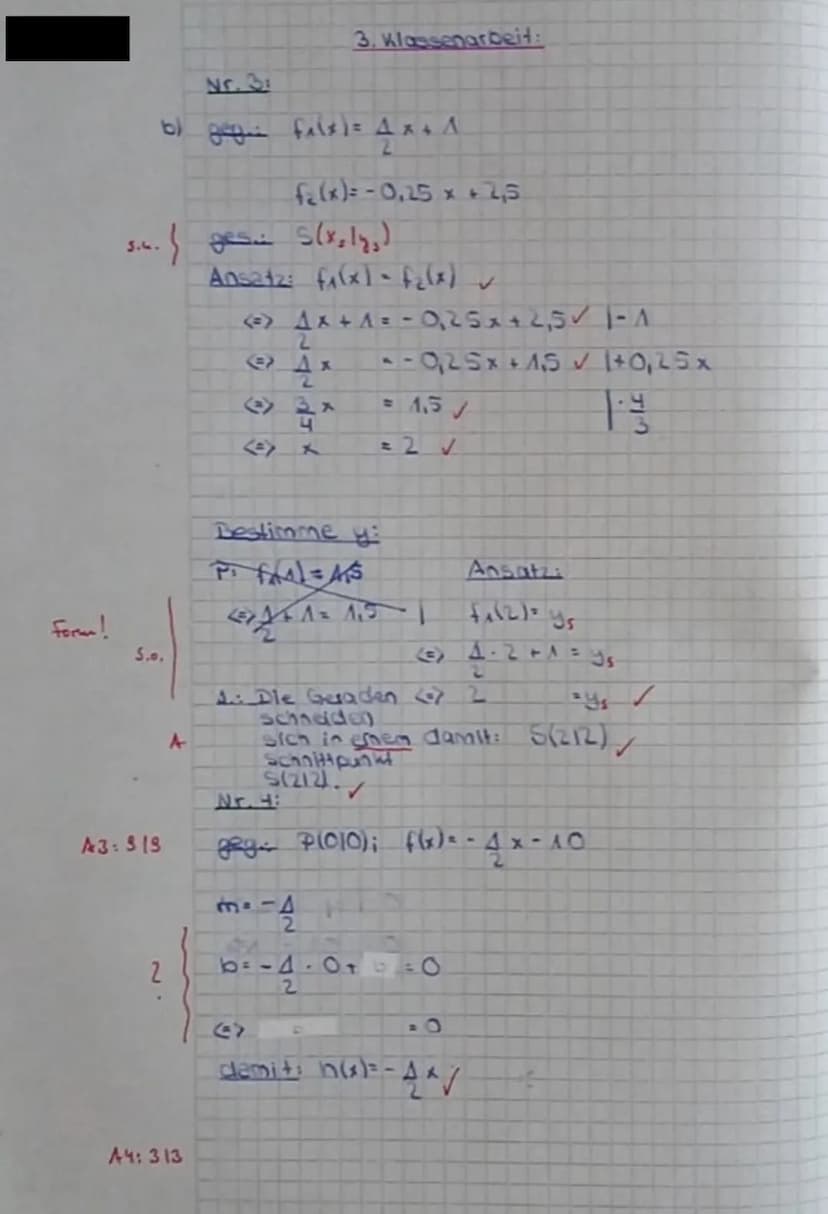 3. Klassenarbeit:
Nr. 3:
b) geg.: f₁(x) = 1/2 x + 1
f₂(x) = - 0,25 x + 2,5
s.u. } ges.: S(xₛ|yₛ)
Ansatz: f₁(x) = f₂(x) ✓
<=> 1/2 x + 1 = - 0,25x + 2,5 ✓ |- 1
<=> 1/2 x = - 0,25x + 1,5 ✓ |+0,25x
<=> 3/4 x = 1,5 ✓ |· 4/3
<=> x = 2 ✓
Bestimme y:
P: f₁(1) = 1,5 Ansatz:
Form! <=> 1/2 + 1 = 1,5 | f₁(2) = yₛ
s.o. <=> 1/2 · 2 + 1 = yₛ
A.: Die Geraden <=> 2 = yₛ ✓
schneiden
A sich in einem damit: S(2|2) ✓
Schnittpunkt
S(2|2). ✓
Nr. 4:
A3: 9|9 geg.: P(0|0); f(x) = - 1/2 x - 10
m = - 1/2
? { b = - 1/2 · 0 + = 0
<=> = 0
damit: h(x) = - 1/2 x ✓
A4: 3|3